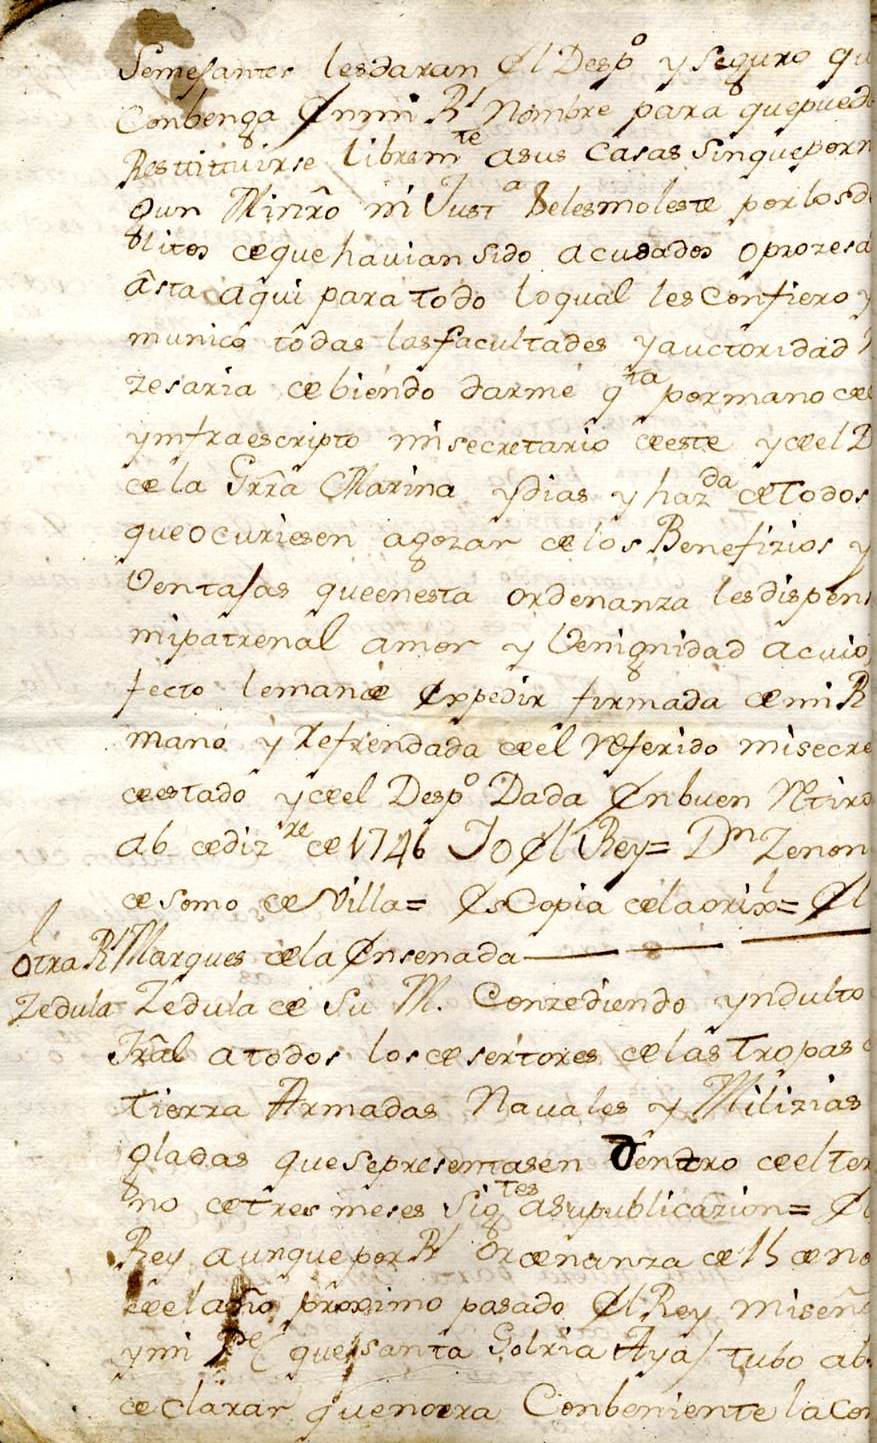 Semejantes les daran El Desp.º y Seguro qu
Conbenga En mi R.l Nombre para que pued
Resttittuirse librem.te a sus Casas Sin que por n
gun Minrô ni Just.a Se les moleste por los de
litos de que havian sido acusados o prozesa
âsta aqui para todo lo qual les Confiero y
munico todas las facultades y auctoridad
zesaria debiendo darme q.ta por mano de
ynfraescripto mi secretario de este y de el D
de la Grrâ Marina yndias y haz.da de Todos
que ocuriesen a gozar de los Benefizios y
Ventajas que en esta ordenanza les dispens
mi patrenal amor y Venignidad a cuio
fecto le mande Expedir firmada de mi R
mano y Refrendada de el Referido mi secre
de estado y de el Desp.º Dada En buen Retiro
a 6 de diz.re de 1746 Yo El Rey = D.n Zenon
de Somo de Villa = Es Copia de la orix.l = El
Marques de la Ensenada
Otra R.l
Zedula
Zedula de Su M. Conzediendo yndulto
Grâl a todos los desertores de las Tropas
Tierra Armadas Navales y Milizias
gladas que se presentasen Dentro de el ter
no de tres meses Sig.tes a su publicazion = El
Rey aunque por R.l Ordenanza de 1h de no
de el año proximo pasado El Rey mi señ
y mi P.e (que santa Golria Aya/ tubo ab
declarar que no era Conbeniente la Con